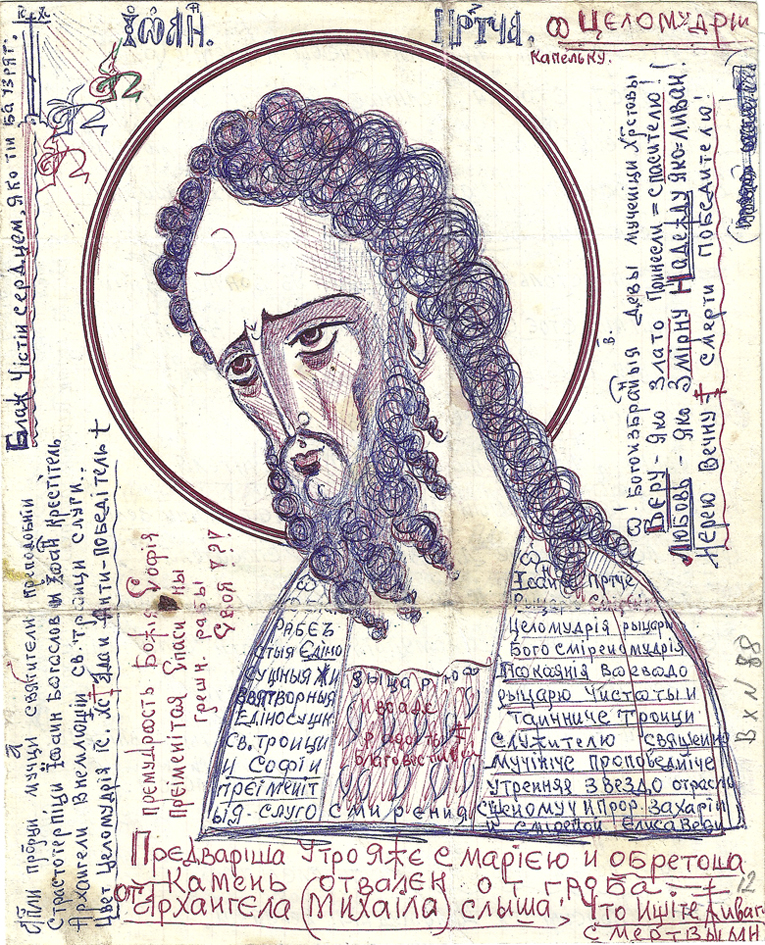 ІС ХС
ІѠАН. ПРТЧА.
Ѡ ЦЕЛОМУДРІИ
КАПЕЛЬКУ.
Блаж Чістіи сердцем, яко тіи Ба узрят.
Ѡ Богоизбранныя Девы мученіци Хрстовы
Веру - яко Злато Принесли = Спасителю!
Любовь - яко Змірну Надежду яко-ливан!
Іерею Вечну ‡ Смерти Победителю!
Апли прбрци мучци святители преподобніи
Страстотерпци Іѡанн Богослов и Іѡан Крестітель
Архангели Внемлющіи св. троици слуги.
Цвет Целомудрія Іс. Хс
Анти-Победітель †
Премудрость Божія Софія
Преіменітая Спаси ны
грешн. рабы
Своя !?!
РАБЕ
стыя Едіно
сушныя Жи
вятворныя
Едіносушн
Св. троици
и Софіи
преіменіт
ыя - слуго смиренія
рыцар
радость
благовестив
Іѡанне Пртче
Целомудрія рыцарь
Богосміреномудрія
Покаянія воеводо
рыцарю Чистоты и
Таинниче троици
Служителю священно
Мучініче Проповедніче
Утренняя Звездо отрасль
сщеномучи прор. захаріи
и смиреной Елисавети
Вх N 88
Предваріша Утро яже с Маріею и обретоша
Камень отвален от гроба. 12
от Архангела (Михаіла) слыша, Что Ищіте Живаго
с мертвыми